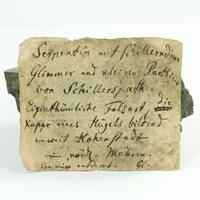 Serpentin mit schillerndem
Glimmer und kleinen Parthien
von Schillerspath
Eigenthümliche Felsart, die
Kuppe eines Hügels bildend
unweit Hohenstadt
im nördl. Mähren.
von mir entdeckt.